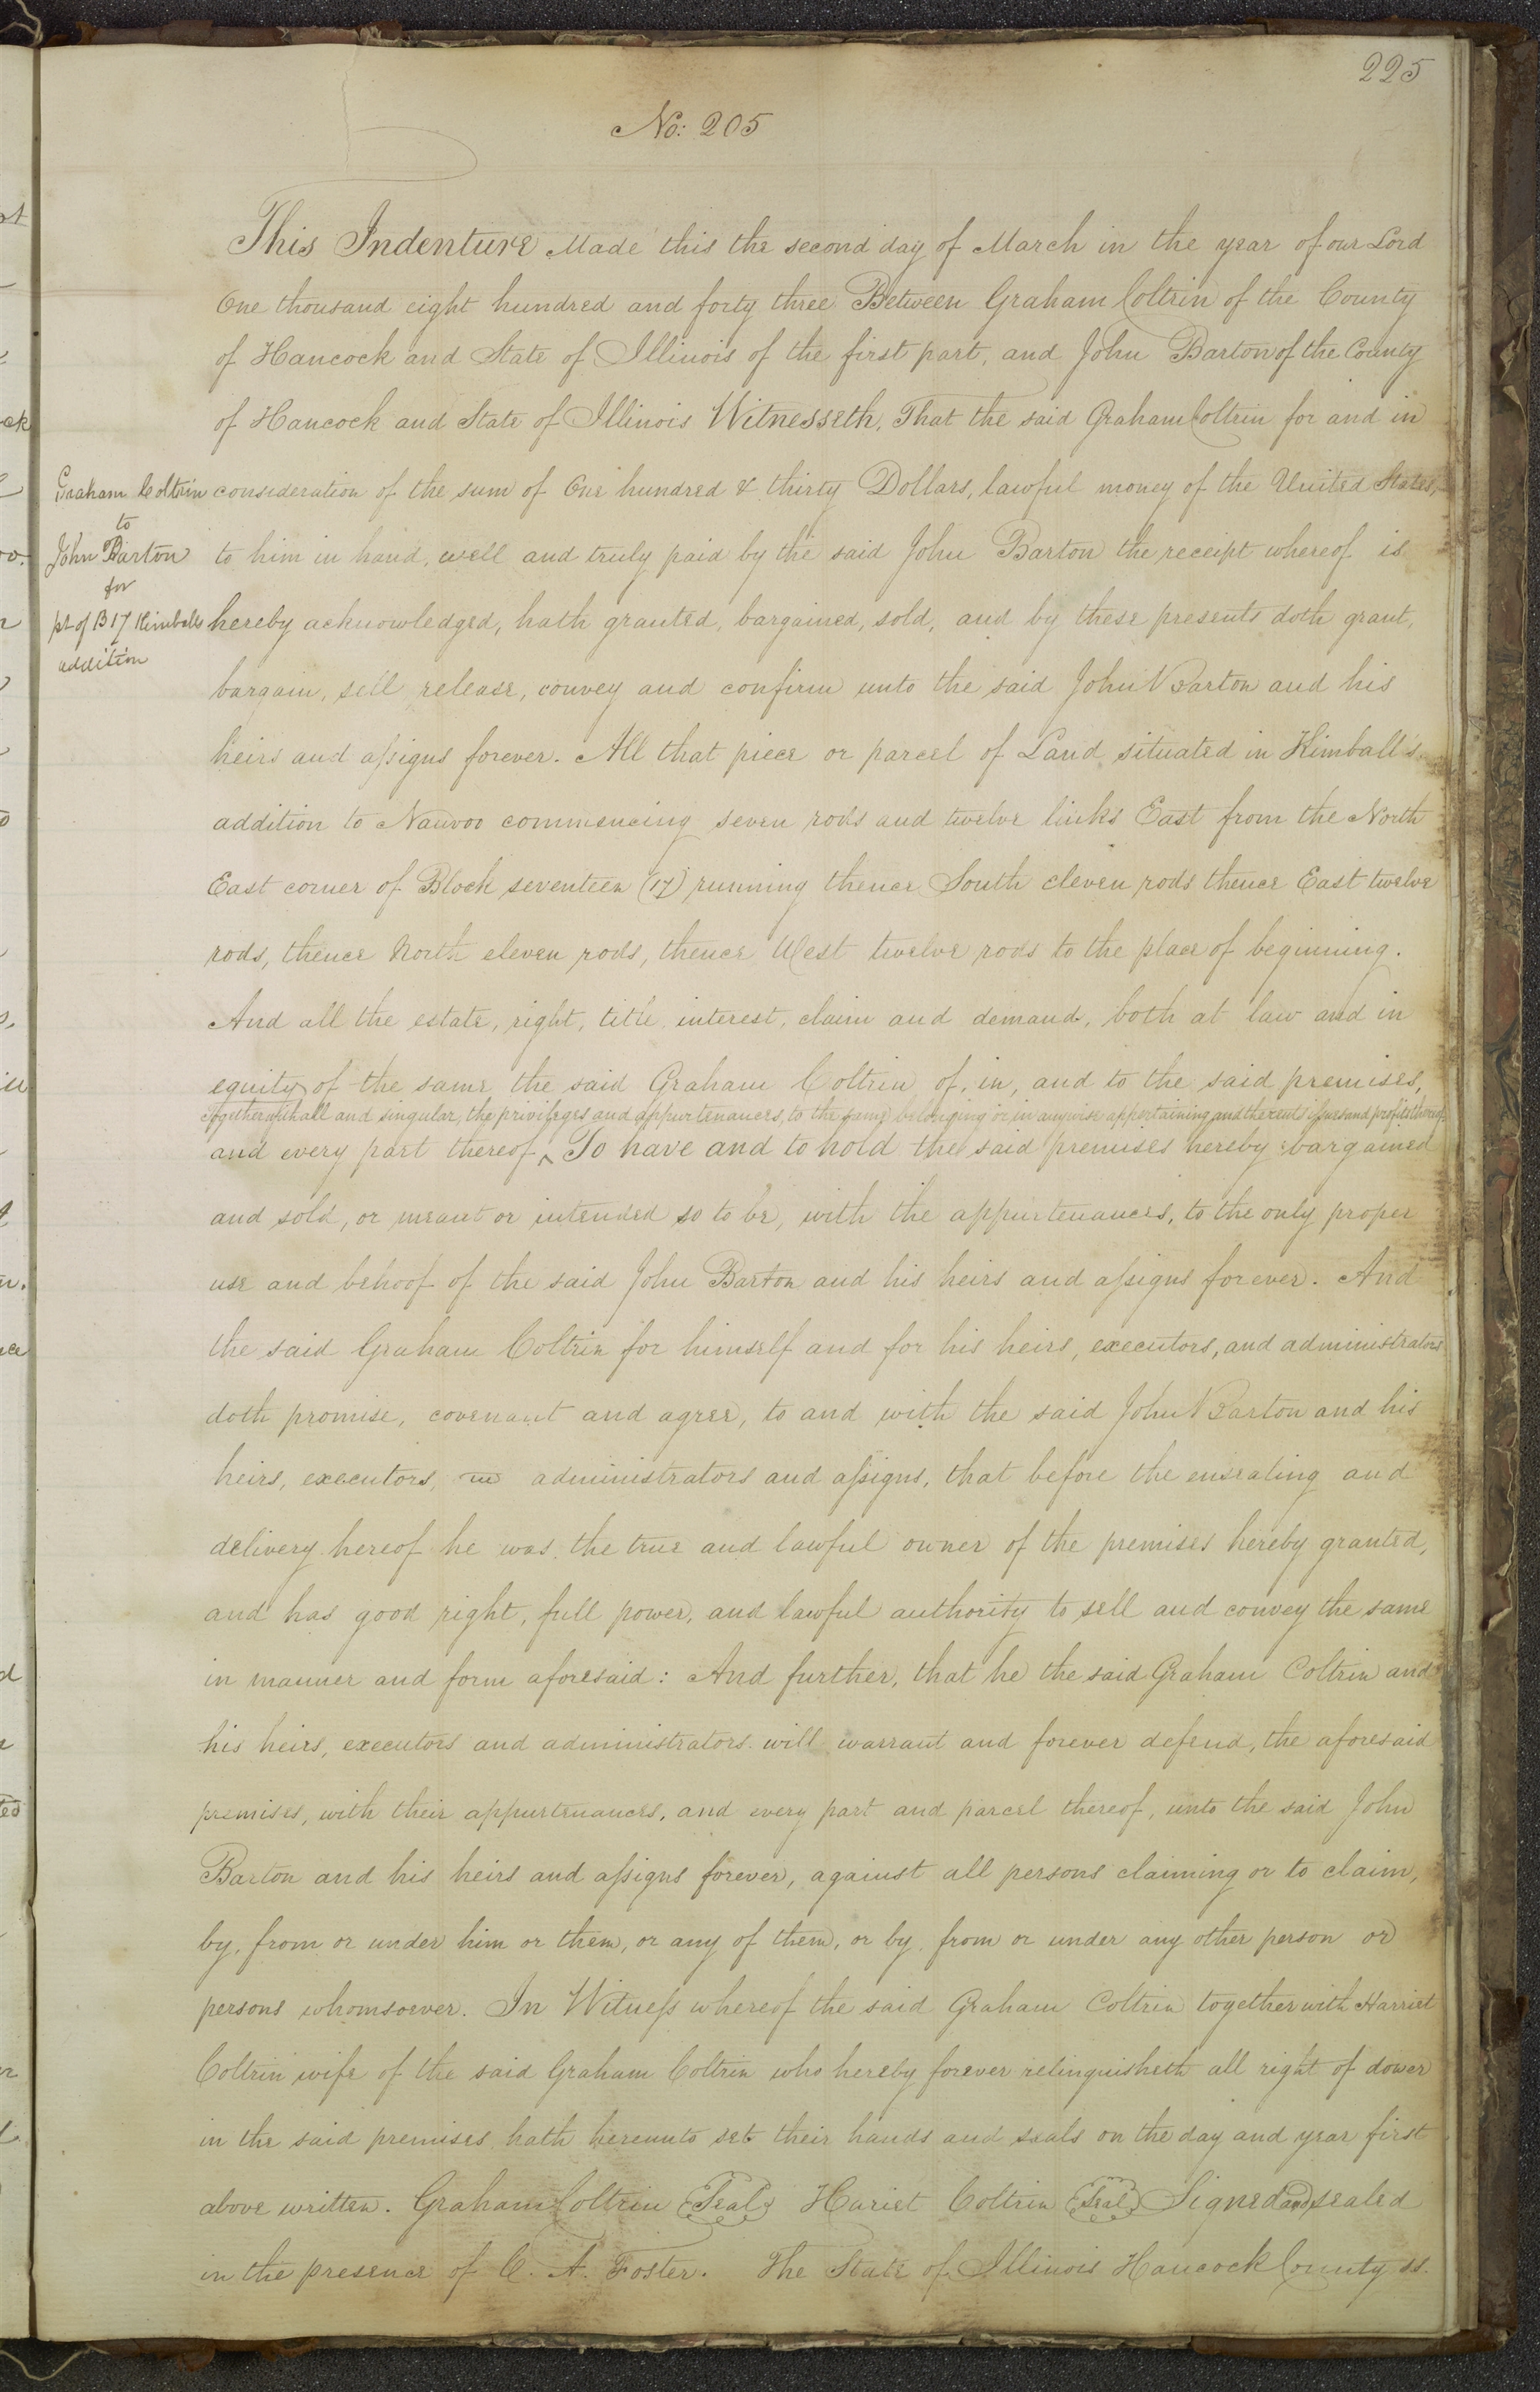 225
No: 205
This Indenture Made this the second day of March in the year of our Lord
One thousand eight hundred and forty three Between Graham Coltrin of the County
of Hancock and State of Illinois of the first part, and John Barton of the County
of Hancock and State of Illinois Witnesseth, That the said Graham Coltrin for and in
Graham Coltrin
to
John Barton
for
pt of B 17 Kimballs
addition
consideration of the sum of One hundred & thirty Dollars, lawful money of the United States,
to him in hand, well and truly paid by the said John Barton the receipt whereof is
hereby acknowledged, hath granted, bargained, sold, and by these presents doth grant,
bargain, sell, release, convey and confirm unto the said John Barton and his
heirs and assigns forever. All that piece or parcel of Land situated in Kimball's
addition to Nauvoo commencing seven rods and twelve links East from the North
East corner of Block seventeen (17) running thence South eleven rods thence East twelve
rods, thence North eleven rods, thence West twelve rods to the place of beginning.
And all the estate, right, title, interest, claim and demand, both at law and in
equity, of the same the said Graham Coltrin of, in, and to the said premises,
Together with all and singular, the privileges and appurtenances, to the same belonging or in anywise appertaining and the rents issues and profits thereof
and every part thereof ^ To have and to hold the said premises hereby bargained
and sold, or meant or intended so to be, with the appurtenances, to the only proper
use and behoof of the said John Barton and his heirs and assigns forever. And
the said Graham Coltrin for himself and for his heirs, executors, and administrators
doth promise, covenant and agree, to and with the said John Barton and his
heirs, executors, administrators and assigns, that before the ensealing and
delivery hereof he was, the true and lawful owner of the premises hereby granted,
and has good right, full power, and lawful authority to sell and convey the same
in manner and form aforesaid: And further, that he the said Graham Coltrin and
his heirs, executors and administrators will warrant and forever defend, the aforesaid
premises, with their appurtenances, and every part and parcel thereof, unto the said John
Barton and his heirs and assigns forever, against all persons claiming or to claim,
by, from or under him or them, or any of them, or by, from or under any other person or
persons whomsoever. In Witness whereof the said Graham Coltrin together with Harriet
Coltrin wife of the said Graham Coltrin who hereby forever relinquisheth all right of dower
in the said premises hath hereunto set their hands and seals on the day and year first
above written. Graham Coltrin Seal Hariet Coltrin Seal Signed and sealed
in the presence of C. A. Foster. The State of Illinois Hancock County ss.